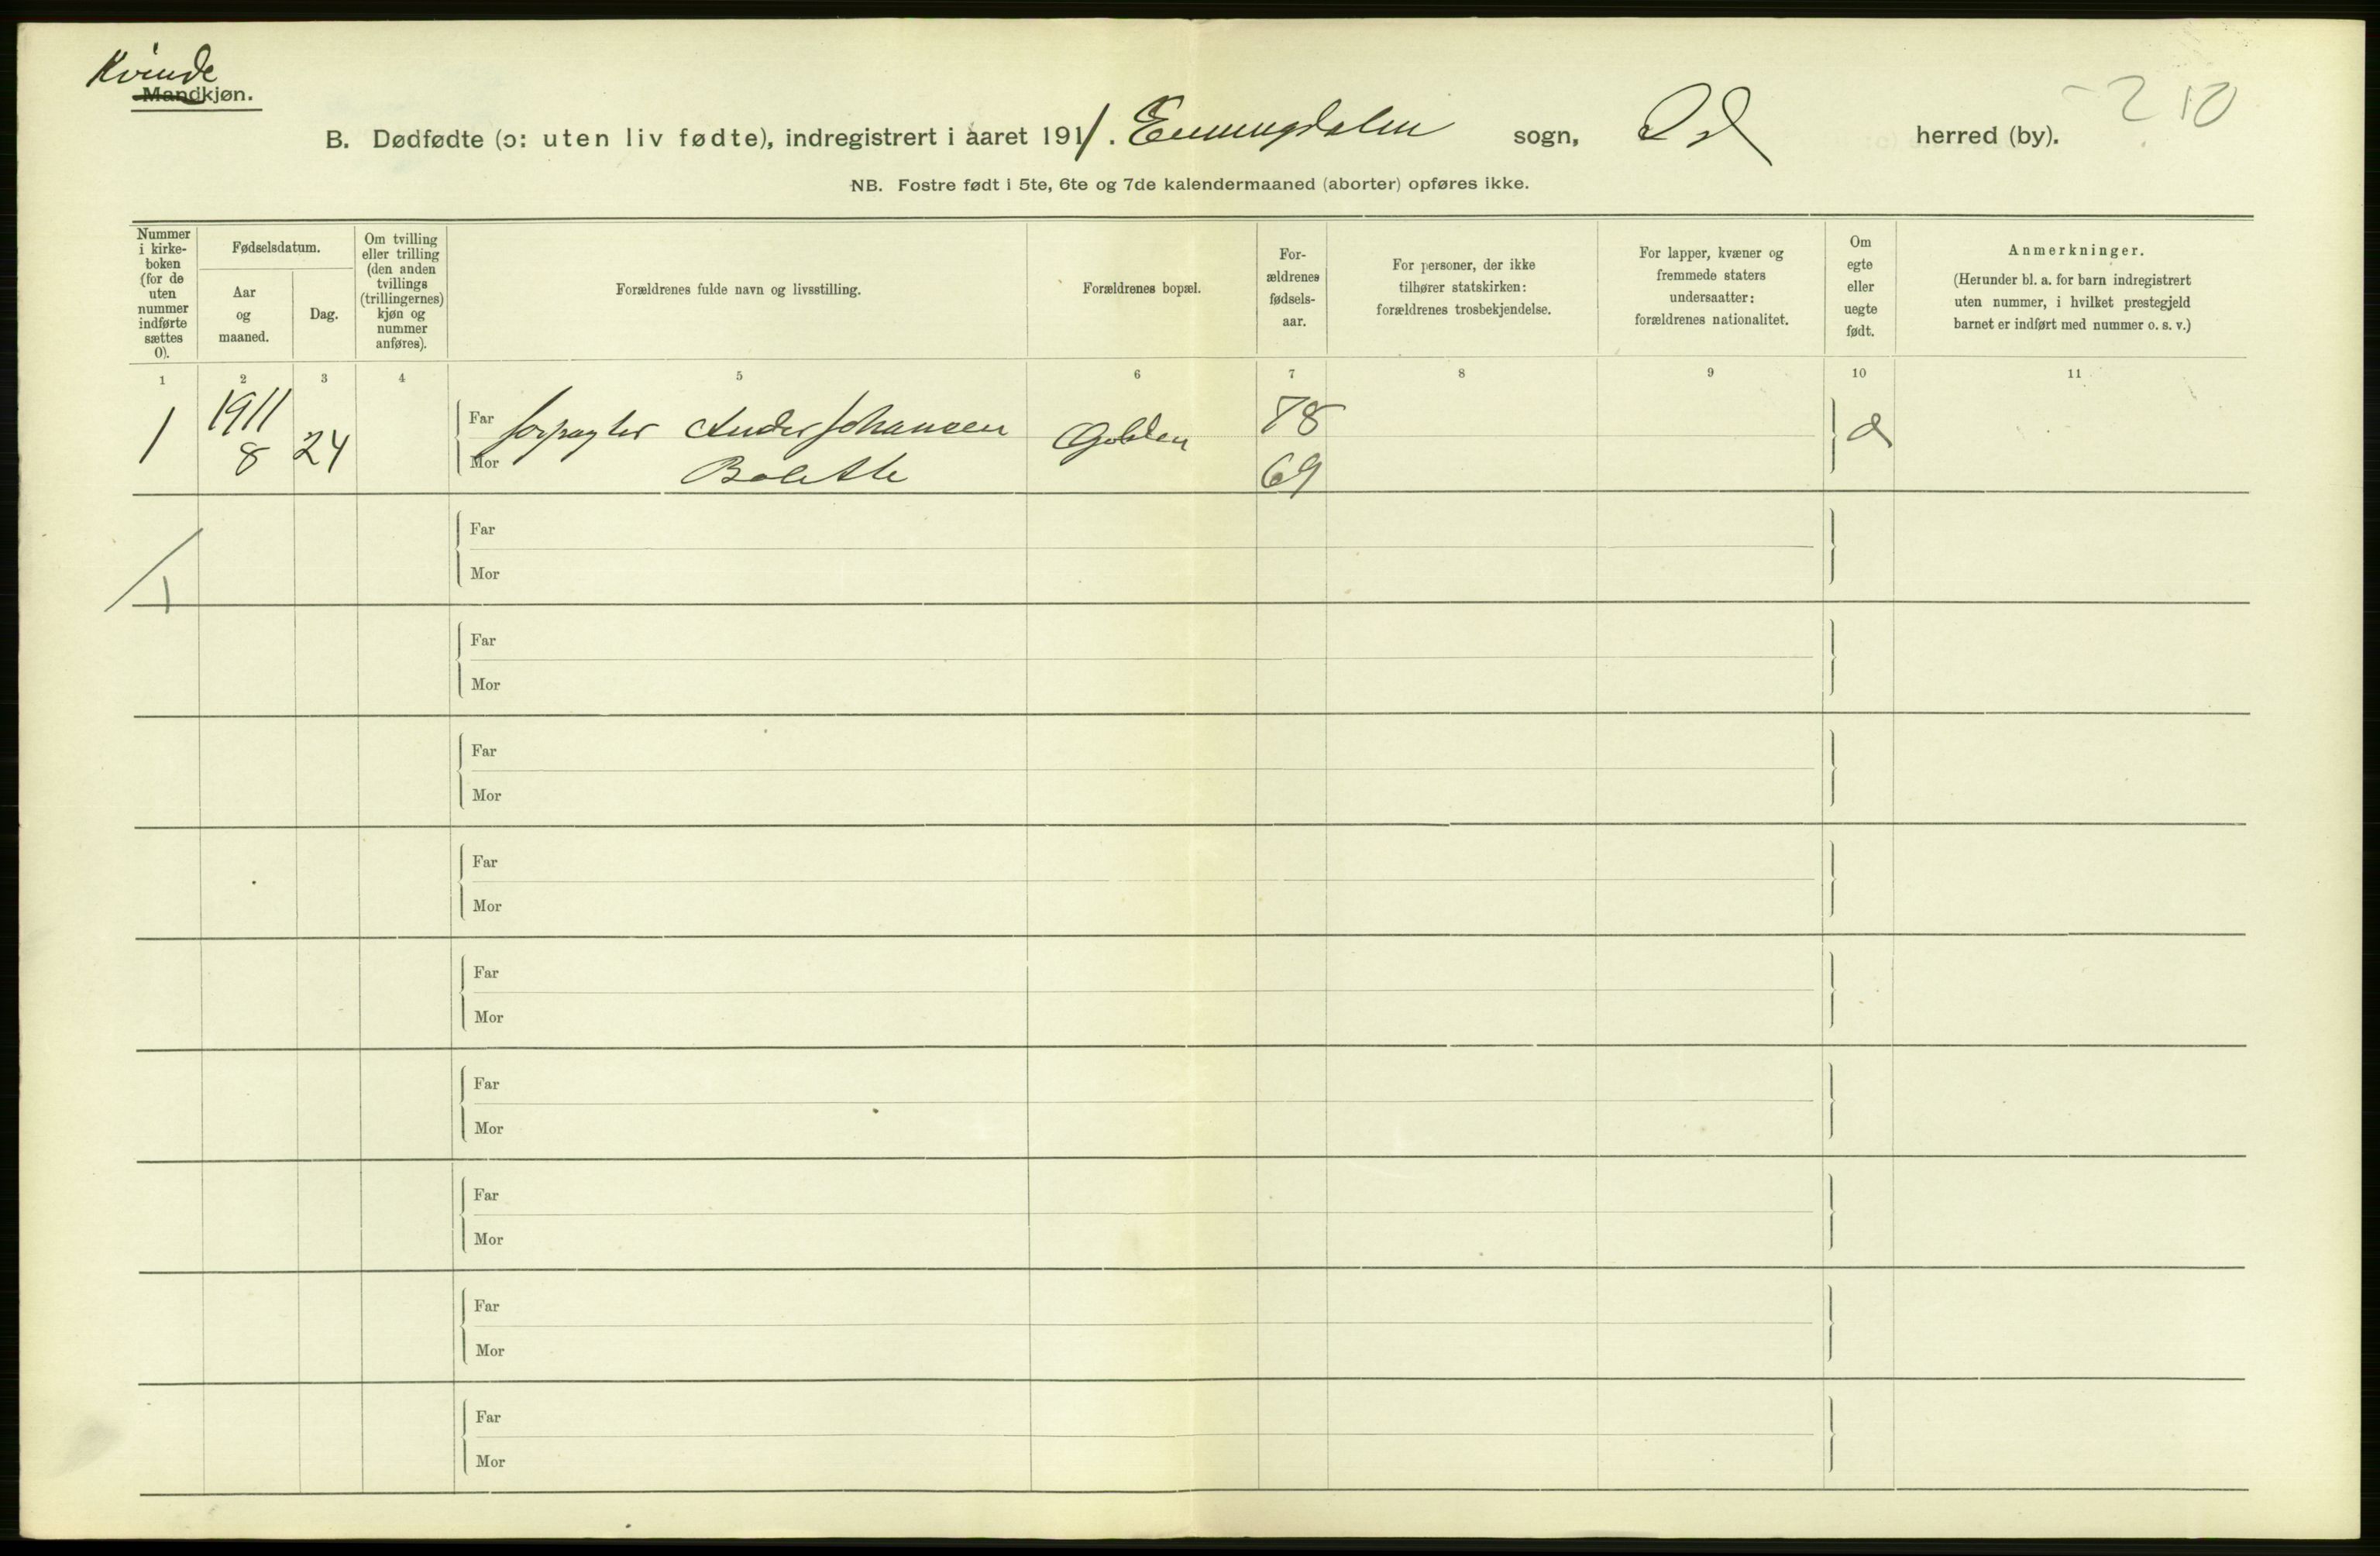 Kvinde
Mandkjøn.
210
B. Dødfødte (ɔ: uten liv fødte), indregistrert i aaret 1911. Enningdalen sogn, Id herred (by).
NB. Fostre født i 5te, 6te og 7de kalendermaaned (aborter) opføres ikke.
Nummer i kirke-boken (for de uten nummer indførte sættes 0).
Fødselsdatum.
Aar og maaned.
Dag.
Om tvilling eller trilling (den anden tvillings (trillingernes) kjøn og nummer anføres).
Forældrenes fulde navn og livsstilling.
Forældrenes bopæl.
For-ældrenes fødsels-aar.
For personer, der ikke tilhører statskirken: forældrenes trosbekjendelse.
For lapper, kvæner og fremmede staters undersaatter: forældrenes nationalitet.
Om egte eller uegte født.
Anmerkninger.
(Herunder bl. a. for barn indregistrert uten nummer, i hvilket prestegjeld barnet er indført med nummer o. s. v.)
1 2 3 4 5 6 7 8 9 10 11
1 1911 8 24 Far forpagter Anders Johansen 78
Mor Bolette 69
1
Far
Mor
Far
Mor
Far
Mor
Far
Mor
Far
Mor
Far
Mor
Far
Mor
Far
Mor
Far
Mor